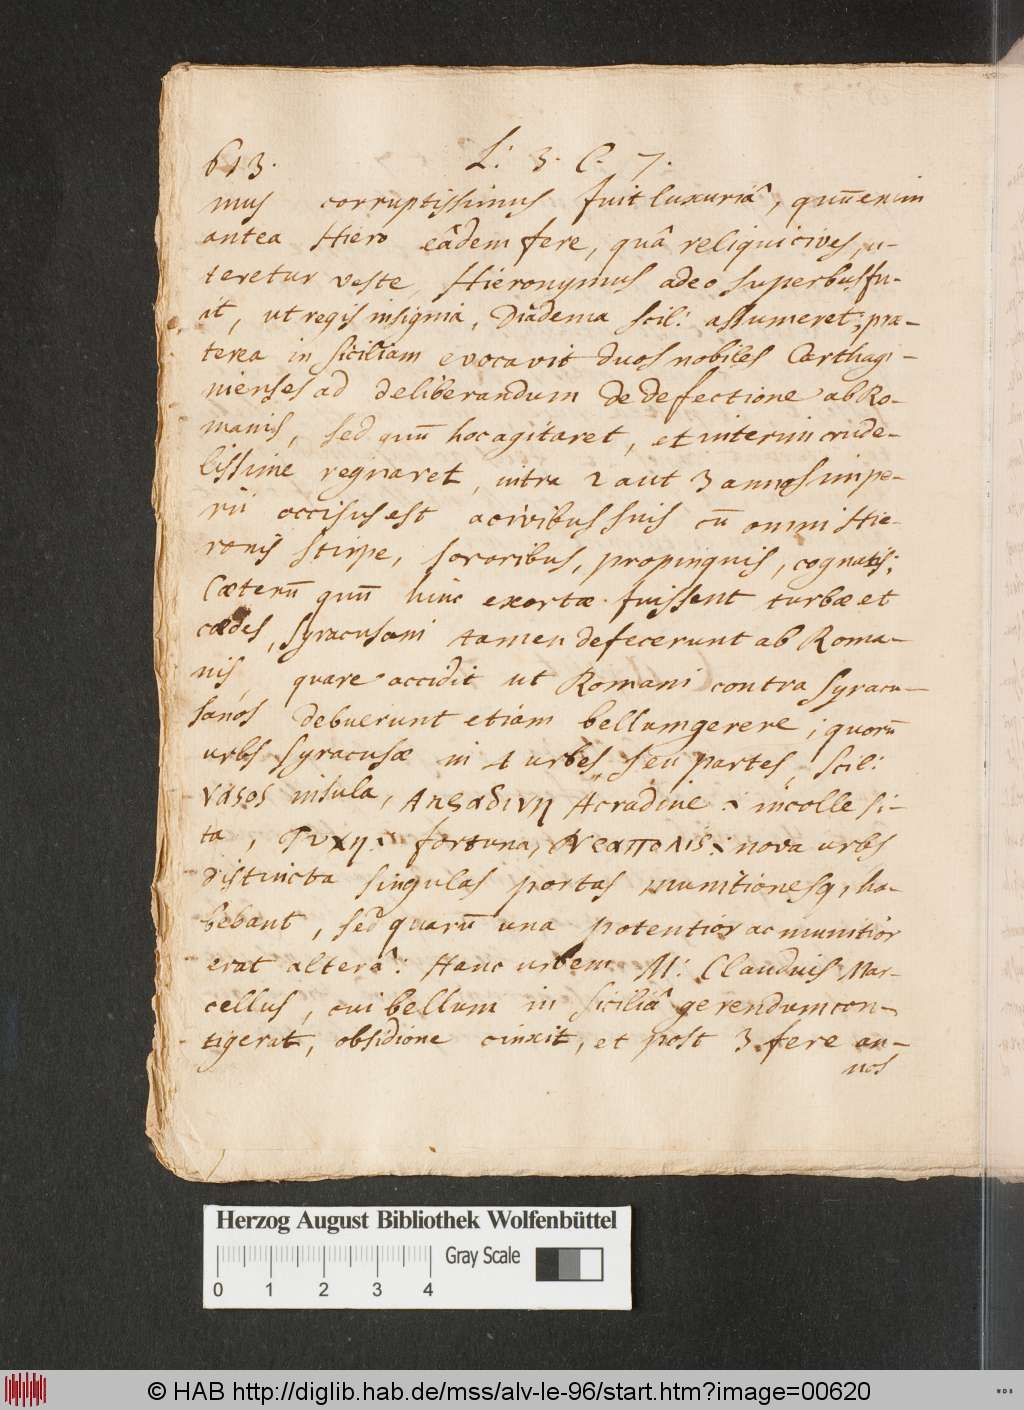 613. L: 3. C. 7.
mus corruptissimus fuit luxuriâ, quūenim
antea Hiero eâdem fere, quâ reliqui cives, u-
teretur veste, Hieronymus adeo superbus fu-
it, ut regis insignia, Diadema scil: assumeret; præ-
terea in siciliam evocavit duos nobiles Carthagi-
nienses ad deliberandum de defectione ab Ro-
manis, sed quū hoc agitaret, et interim crude-
lissime regnaret, intra 2 aut 3 annos impe-
rii occisus est a civibus suis cū omni Hie-
ronis stirpe, sororibus, propinquis, cognatis;
Cæterū quū hinc exortæ fuissent turbæ et
cædes, Syracusani tamen defecerunt ab Roma-
nis, quare accidit ut Romani contra Syracu-
sanos debuerunt etiam bellum gerere; quorū
urbs Syracusæ in 4 urbes seu partes, scil:
νάσος insula, Ακραδινη Acradine : in colle si-
ta, Τυχη: fortuna, Νεαπολις: nova urbs
distincta singulas portas munitionesq, ha-
bebant, sed quarū una potentior ac munitior
erat alterâ: Hanc urbem M: Claudius Mar-
cellus, cui bellum in siciliâ gerendum con-
tigerat, obsidione cinxit, et post 3 fere an-
nos
Herzog August Bibliothek Wolfenbüttel
Gray Scale
0 1 2 3 4
© HAB http://diglib.hab.de/mss/alv-le-96/start.htm?image=00620